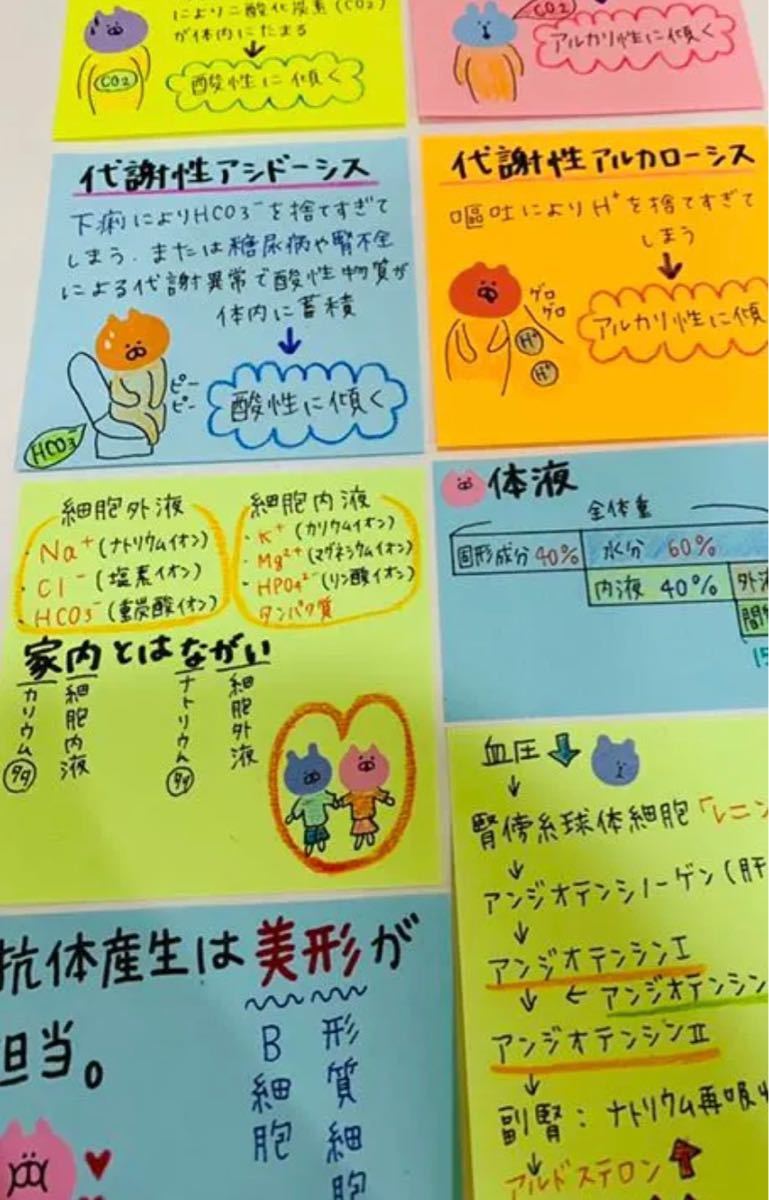 により二酸化炭素(CO2)
が体内にたまる
CO2
酸性に傾く
CO2
アルカリ性に傾く
代謝性アシドーシス
下痢によりHCO3⁻を捨てすぎて
しまう、または糖尿病や腎不全
による代謝異常で酸性物質が
体内に蓄積
ピー
ピー
HCO3⁻
酸性に傾く
代謝性アルカローシス
嘔吐によりH⁺を捨てすぎて
しまう
ゲロ
ゲロ
H⁺
H⁺
アルカリ性に傾
細胞外液
・Na⁺(ナトリウムイオン)
・Cl⁻(塩素イオン)
・HCO3⁻(重炭酸イオン)
細胞内液
・K⁺(カリウムイオン)
・Mg²⁺(マグネシウムイオン)
・HPO4²⁻(リン酸イオン)
タンパク質
家内とはながい
カリウム多
細胞内液
ナトリウム多
細胞外液
体液
全体重
固形成分40% 水分60%
内液 40% 外液
間
15
血圧
↓
腎傍糸球体細胞「レニン
↓
アンジオテンシノーゲン(肝
↓
アンジオテンシンⅠ
↓ ← アンジオテンシン
アンジオテンシンⅡ
↓
副腎:ナトリウム再吸収
↓
アルドステロン
抗体産生は美形が
担当。
B細胞
形質細胞